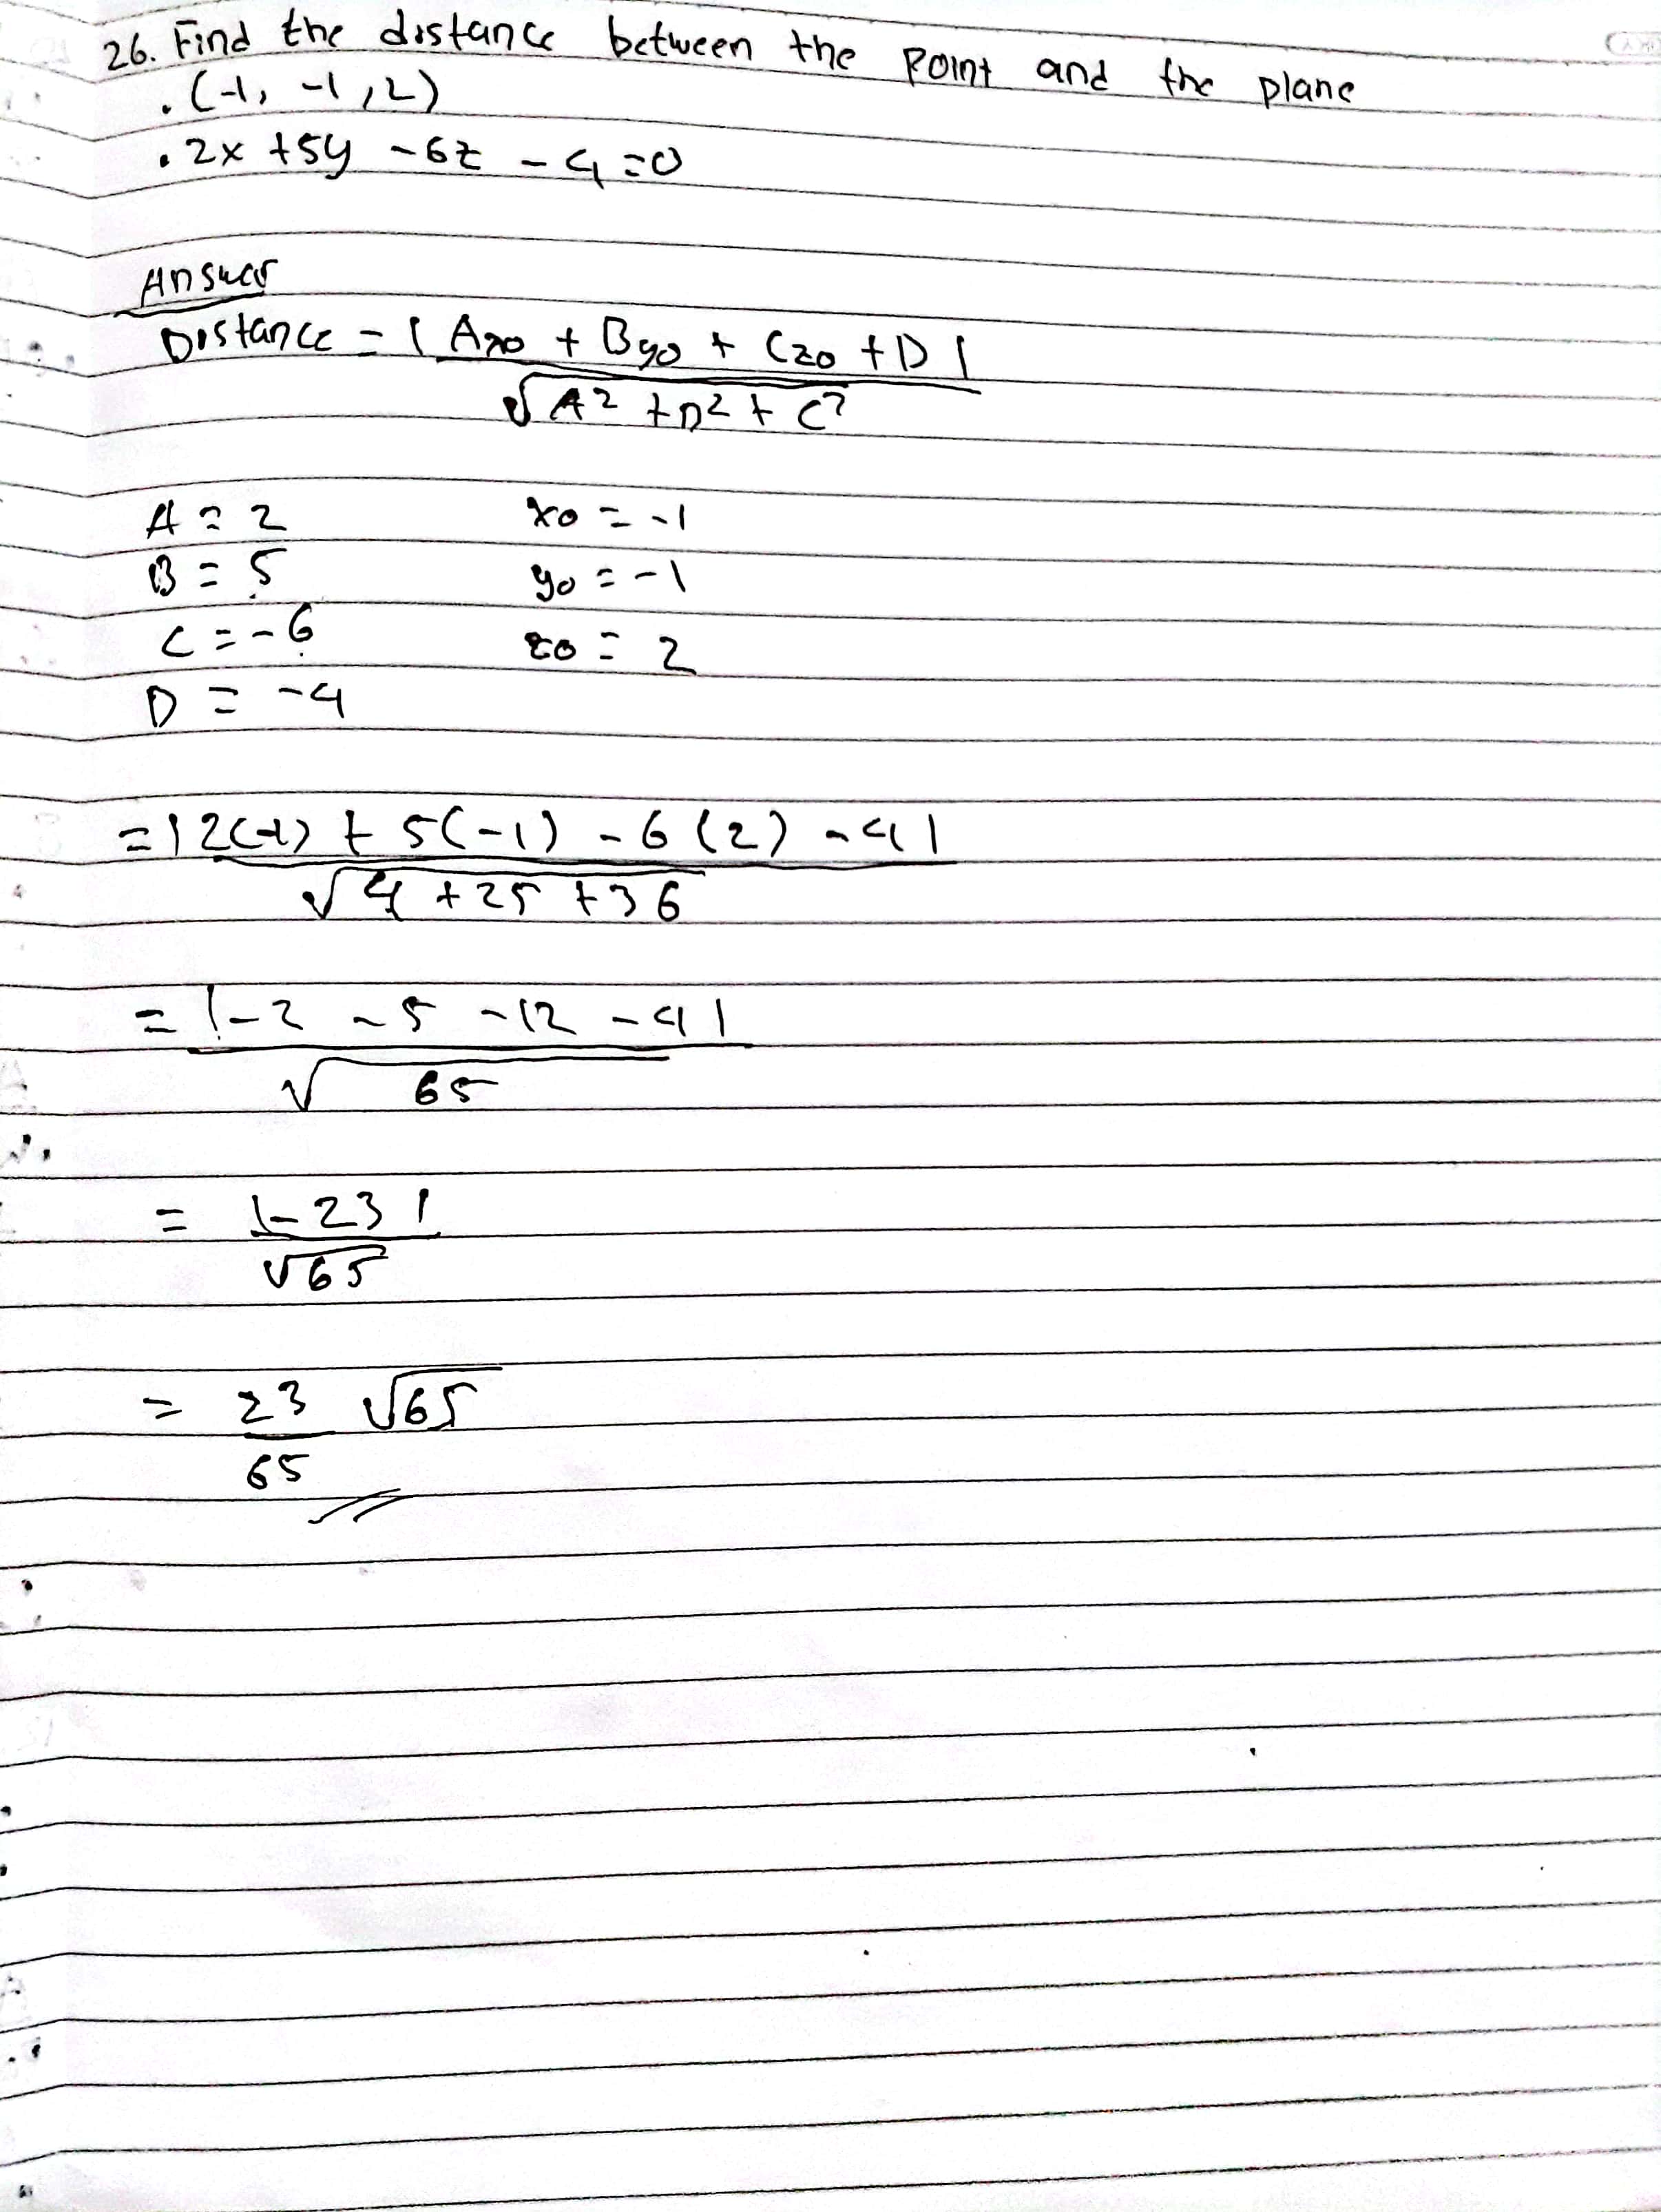 26. Find the distance between the point and the plane
. (-1, -1, 2)
. 2x +5y -6z -4 =0
Answer
Distance = | Ax0 + By0 + Cz0 + D |
√A2 +B2 + C2
A = 2 x0 = -1
B = 5 y0 = -1
C = -6 z0 = 2
D = -4
= |2(-1) + 5(-1) - 6 (2) -4|
√4 +25 +36
= |-2 -5 -12 -4|
√65
= |-23|
√65
= 23 √65
65